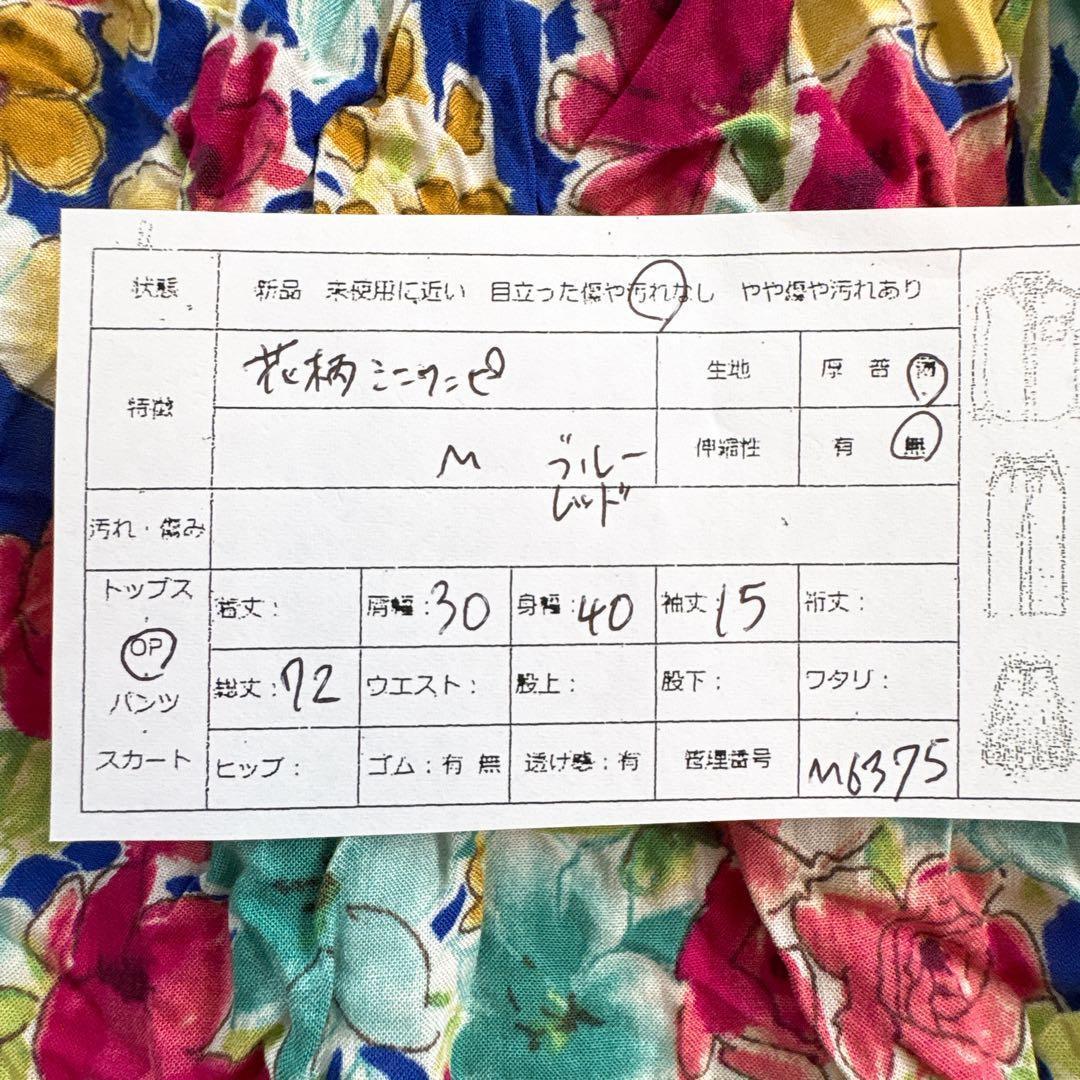 状態 新品 未使用に近い 目立った傷や汚れなし やや傷や汚れあり
特徴 花柄ミニワンピ 生地 厚 普 薄
M ブルー 伸縮性 有 無
レッド
汚れ・傷み
トップス 着丈: 肩幅:30 身幅:40 袖丈 15 裄丈:
・
OP 総丈:72 ウエスト: 股上: 股下: ワタリ:
パンツ
・
スカート ヒップ: ゴム:有 無 透け感:有 管理番号 M6375